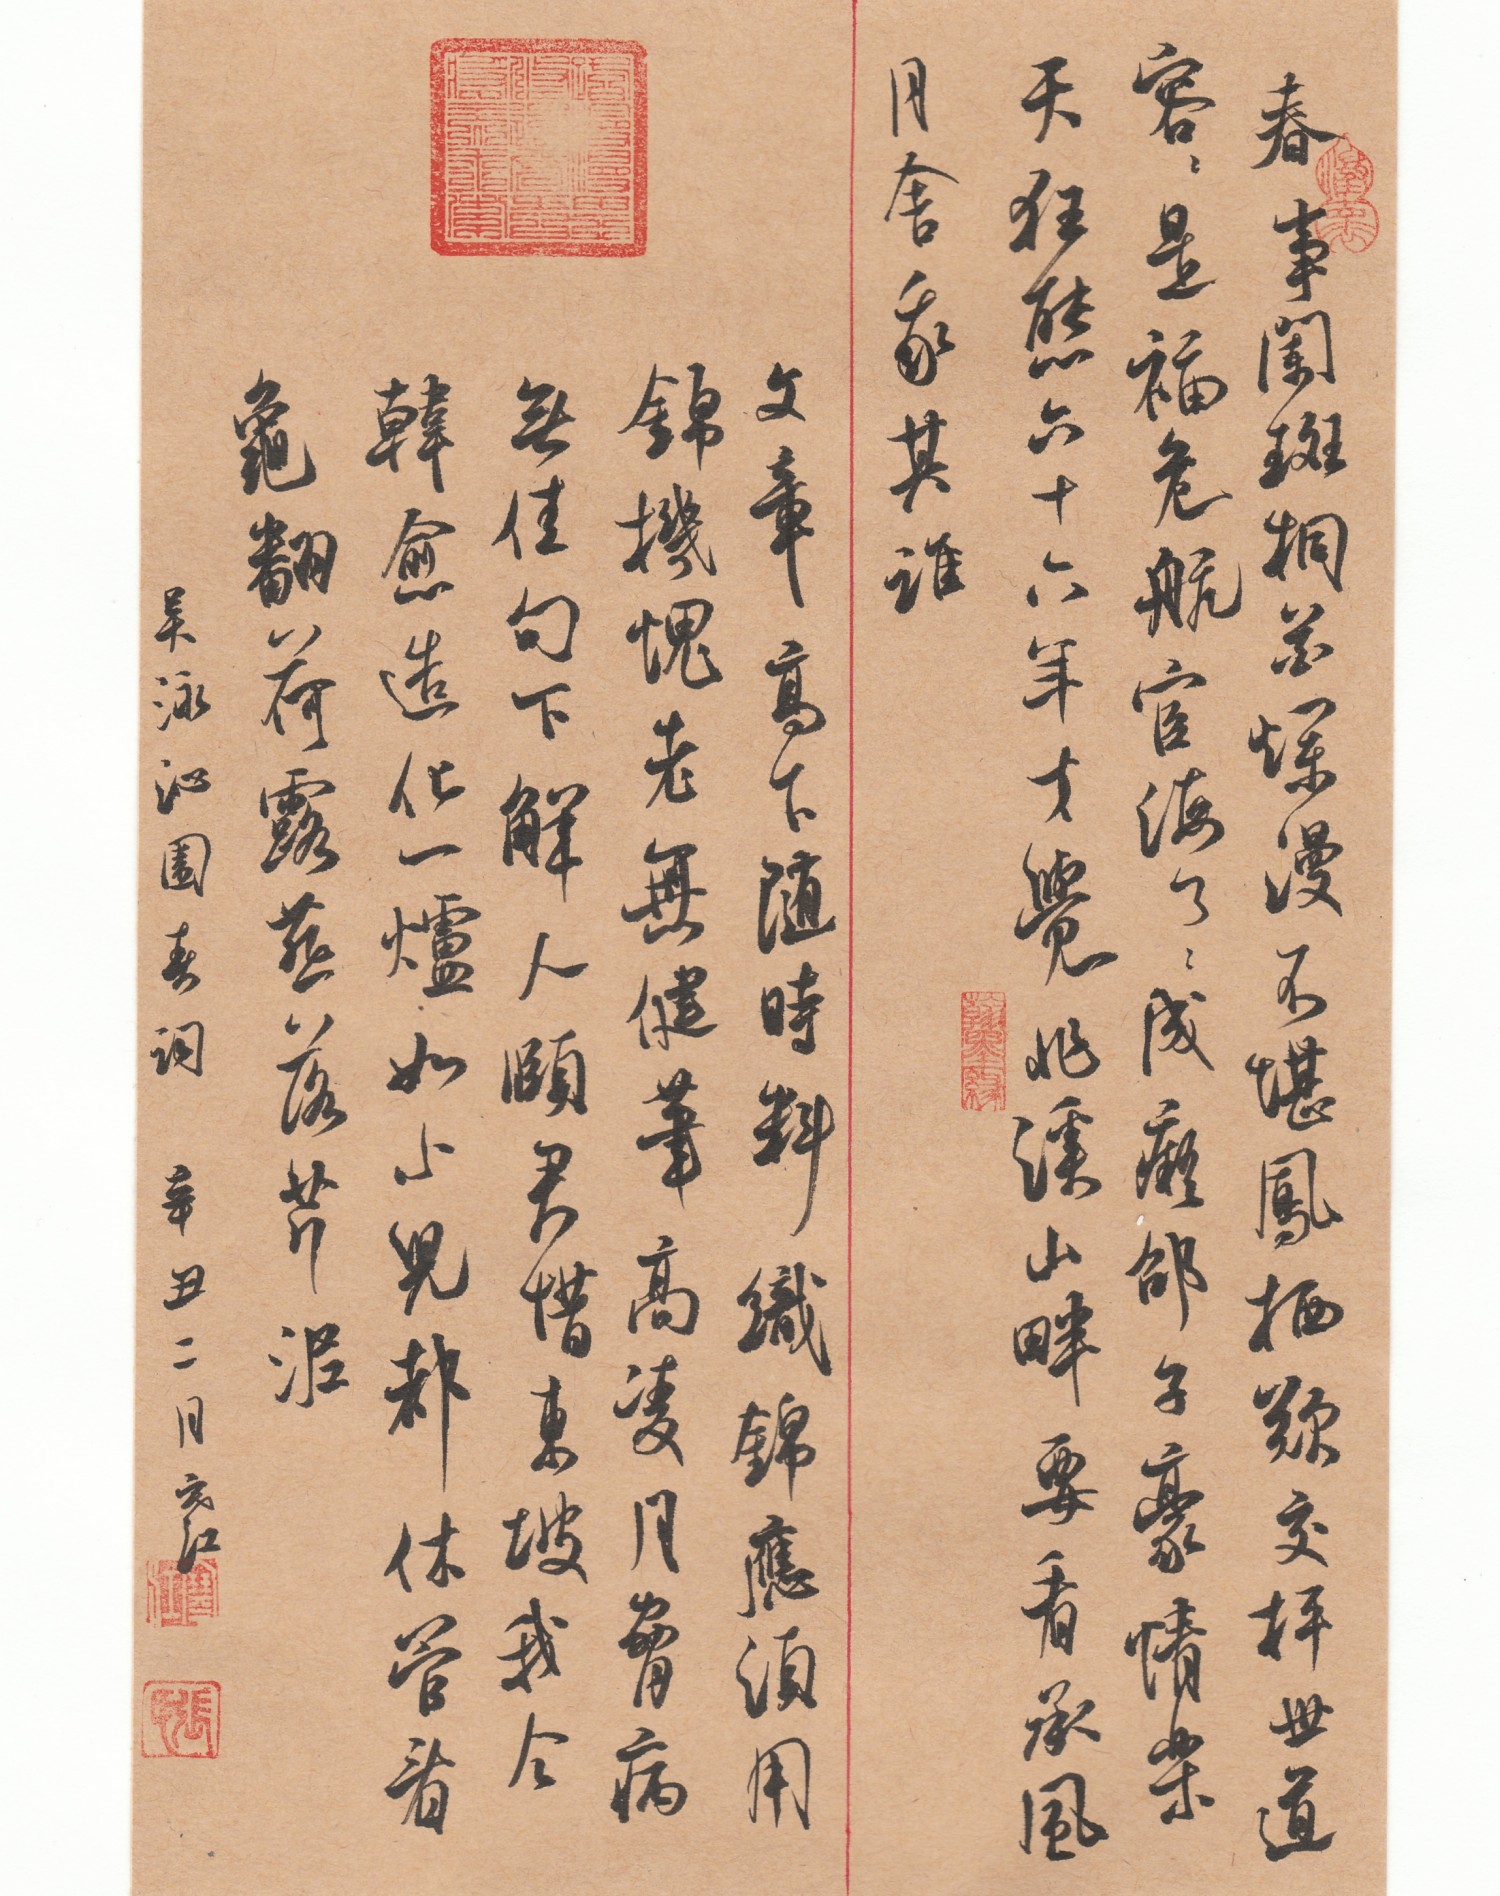 春事闌斑桐花爛漫不堪鳳栖歎交拜世道
容〻是福危航宦海了〻成癡郃子豪情柴
天狂態六十六年才覺非溪山畔要看承風
月舍我其誰
文章高下隨時料織錦應須用
錦機愧老無健筆高凌月脅病
無佳句下解人頤君惜東坡我今
韓愈造化一爐如小兒都休管看
龜翻荷露燕落芹泥
吳泳沁園春詞 辛丑二月